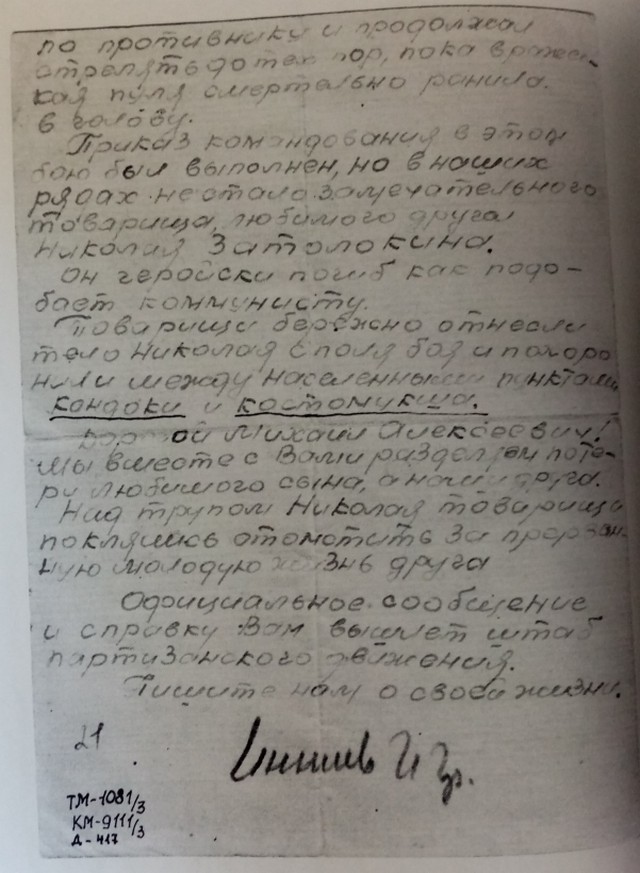 по противнику и продолжал
стрелять до тех пор, пока вражес-
кая пуля смертельно ранила
в голову.
Приказ командования в этом
бою был выполнен, но в наших
рядах не стало замечательного
товарища, любимого друга
Николая Затолокина.
Он геройски погиб как подо-
бает коммунисту.
Товарищи бережно отнесли
тело Николая с поля боя и похоро
нили между населенными пунктами
кондоки и костомукша.
Дорогой Михаил Алексеевич!
Мы вместе с Вами разделяем поте-
рю любимого сына, а наш друга.
Над трупом Николая товарищи
поклялись отомстить за прерван-
ную молодую жизнь друга
Официальное сообщение
и справку Вам вышлет штаб
партизанского движения.
Пишите нам о своей жизни.
21
ТМ-1081/3
КМ-9111/3
Д-417